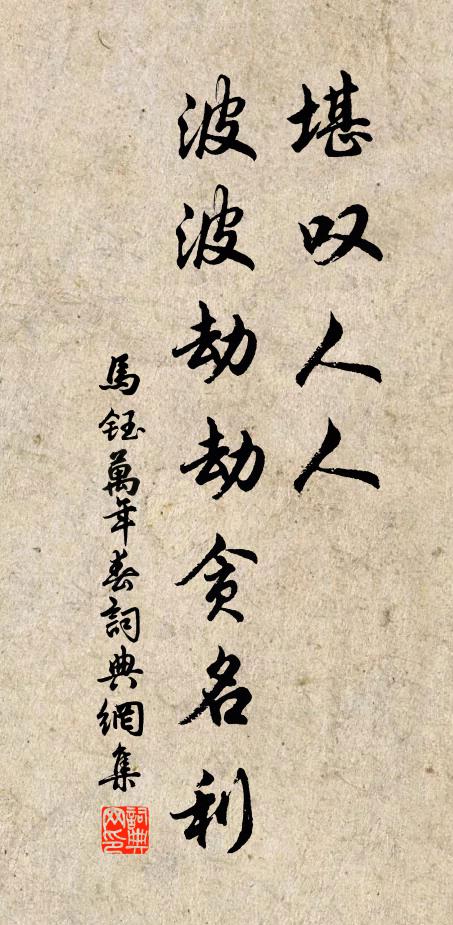 堪叹人人
波波劫劫贪名利
馬鈺萬年春詞典網集
詞典网印